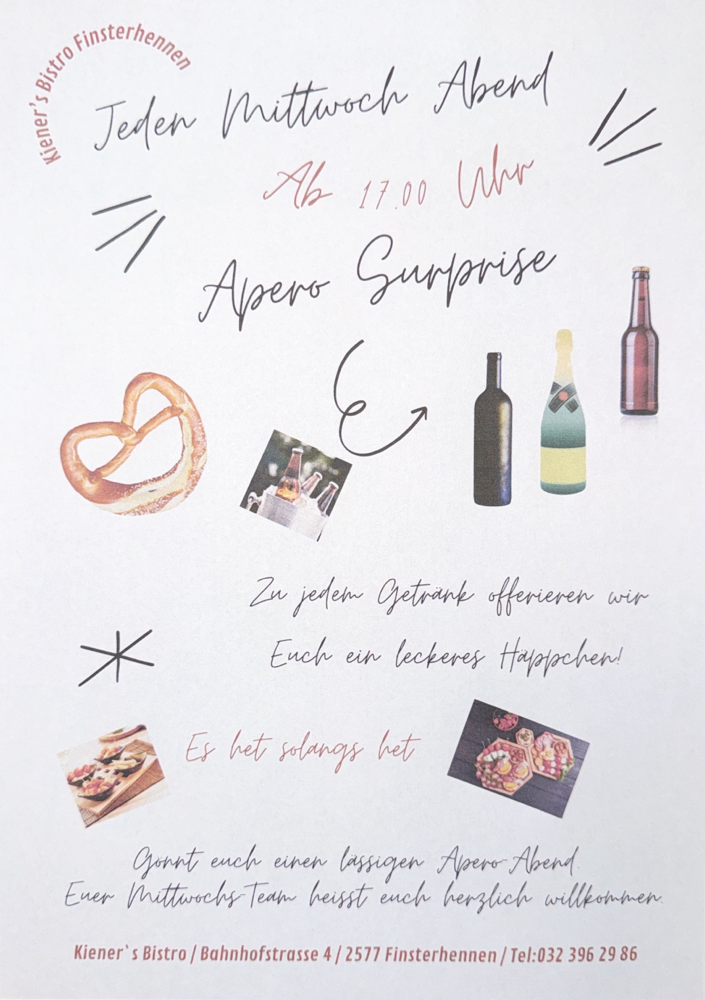 Kiener's Bistro Finsterhennen
Jeden Mittwoch Abend
Ab 17.00 Uhr
Apero Surprise
Zu jedem Getränk offerieren wir
Euch ein leckeres Häppchen!
Es het solangs het
Gönnt euch einen lässigen Apero-Abend.
Euer Mittwochs-Team heisst euch herzlich willkommen.
Kiener`s Bistro / Bahnhofstrasse 4 / 2577 Finsterhennen / Tel:032 396 29 86